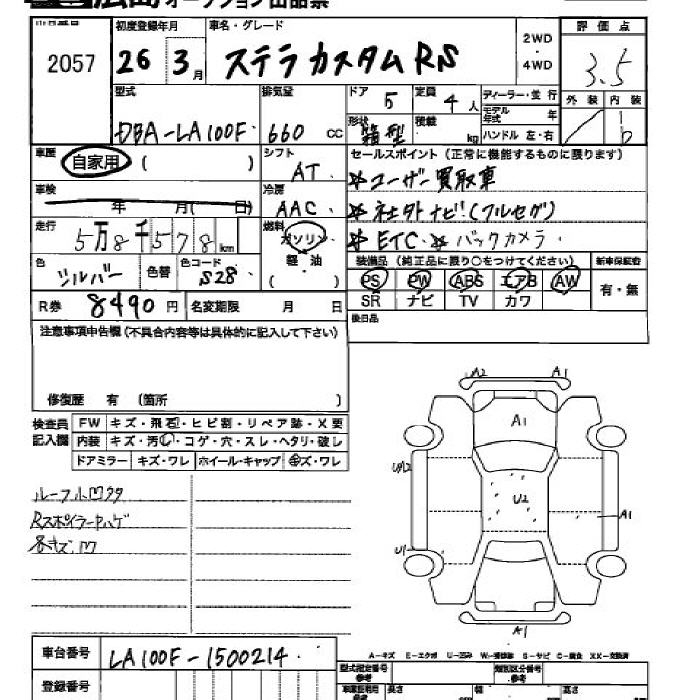 オークション出品票
2057
初度登録年月
26 3月
車名・グレード
ステラカスタム RS
2WD
・
4WD
評価点
3.5
外装 内装
型式
DBA-LA100F
排気量
660 cc
ドア 5
定員 4人
形状 箱型
積載 kg
ディーラー・並行
モデル年式 年
ハンドル 左・右
車歴
自家用 ( )
シフト
AT
セールスポイント (正常に機能するものに限ります)
☆ユーザー買取車
☆社外ナビ(フルセグ)
☆ETC ☆バックカメラ
車検
年 月( 日)
冷房
AAC
走行
5万8千578km
燃料
ガソリン
軽油
( )
色
シルバー
色替
色コード
S28
装備品 (純正品に限り○をつけてください)
PS PW ABS エアB AW
SR ナビ TV カワ
新車保証書
有・無
R券 8490円
名変期限 月 日
後日品
注意事項申告欄 (不具合内容等は具体的に記入して下さい)
修復歴 有 (箇所 )
検査員記入欄
FW キズ・飛石・ヒビ割・リペア跡・X要
内装 キズ・汚レ・コゲ・穴・スレ・ヘタリ・破レ
ドアミラー キズ・ワレ ホイール・キャップ キズ・ワレ
ルーフ小凹多
Rスポイラー中ハゲ
各キズ.凹
A2 A1
A1
U2
A1
U1
A1
A-キズ E-エクボ U-凹み W-補修跡 S-サビ C-腐食 XX-交換済
車台番号
LA100F-1500214
登録番号
型式指定番号
類別区分番号
長さ 幅 高さ